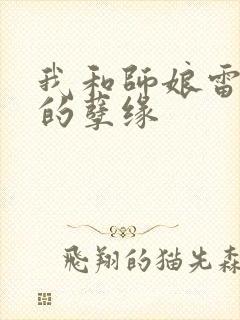 我和師娘雷
的孽缘
飛翔的猫先森